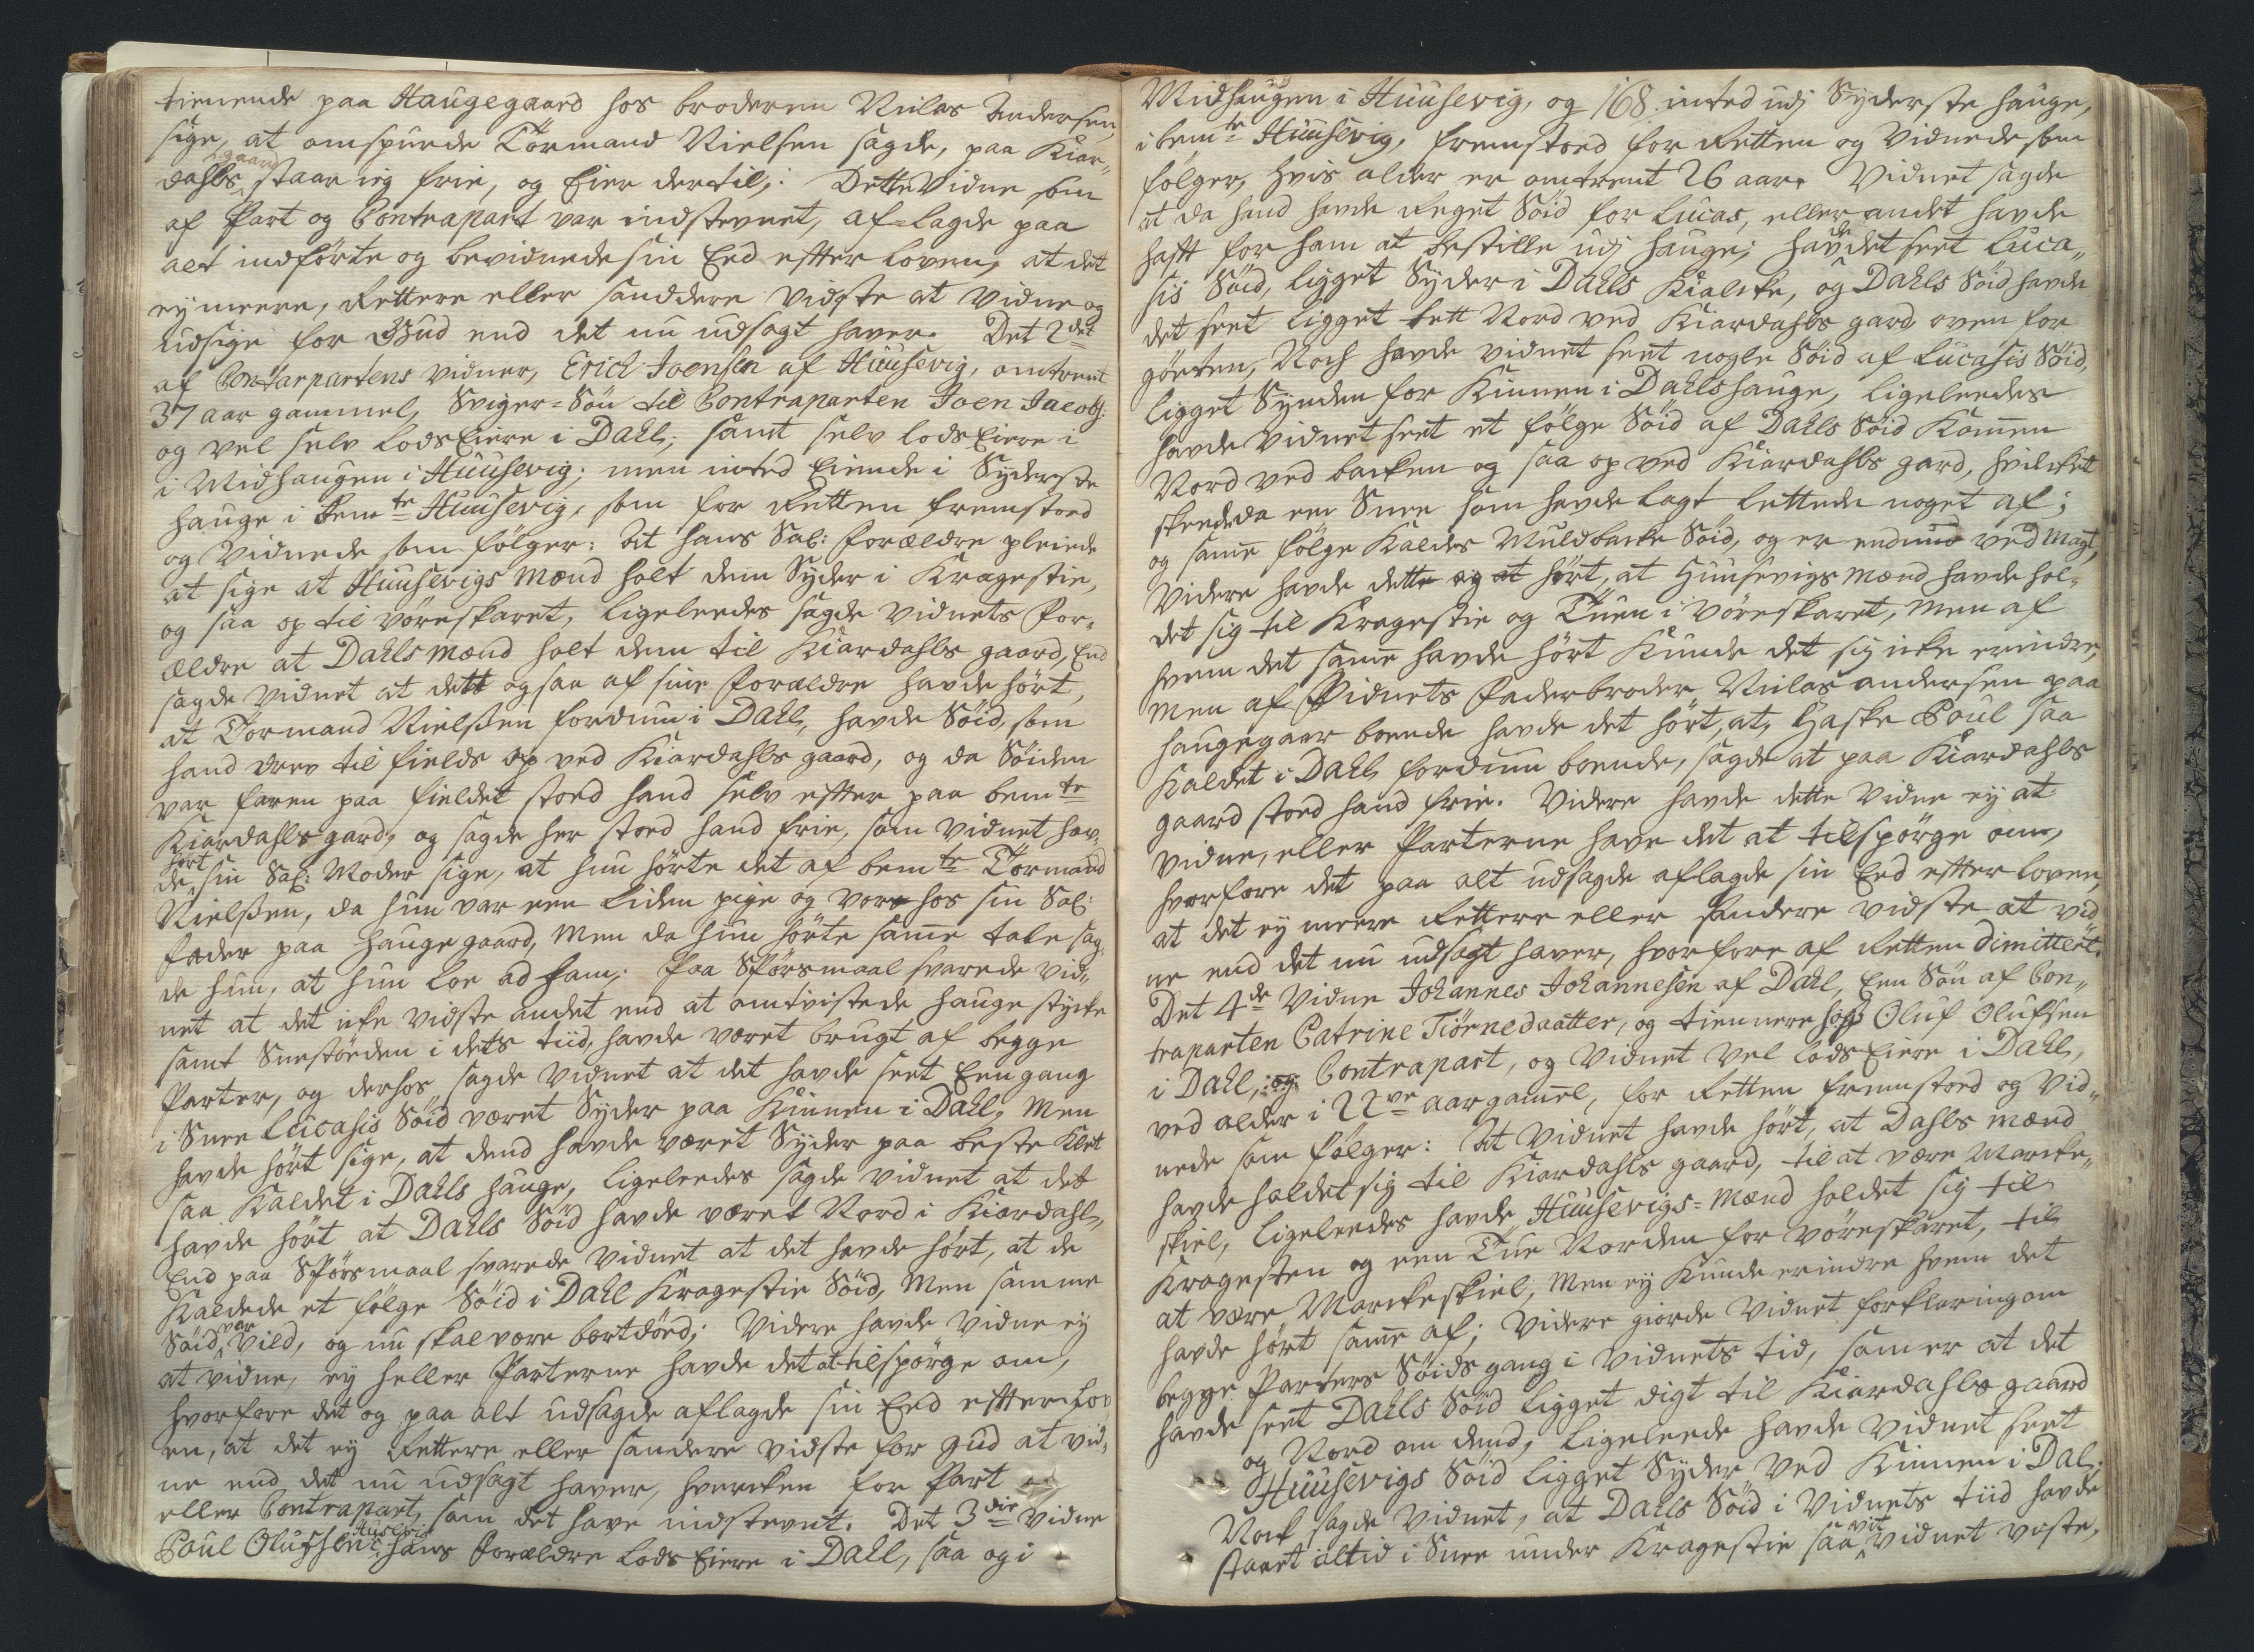 tienende paa Haugegaard hos broderen Niclas Andersen
sige, at omspurde Tormand Nielsen sagde, paa Kiar-
dahls gaard staar ieg frie, og Eier dertil; Dette Vidne som
af Part og Contrapart var indstevnet, af-lagde paa
alt indførte og bevidnede sin Eed efter loven, at det
ey meere, Rettere eller sanddere vidste at vidne og
udsige for Gud end det nu udsagt haver. Det 2det
af Contrapartens vidner, Erich Joensen af Huusevig, omtrent
37 aar gammel, Sviger-Søn til Contraparten Joen Jacobs:
og vel selv lods Eiere i Dahl; samt selv lods Eiere i
i Midhaugen i Huusevig; men inted Eiende i Syderste
hauge i bemte Huusevig, som for Retten fremstoed
og Vidnede som følger: At hans Sal: Forældre pleiede
at sige at Huusevigs Mænd holt dem Syder i Kragestie,
og saa op til vøreskaret, ligeleedes sagde vidnets For-
ældre at Dahls mænd holt dem til Kiardahls gaard, End
sagde vidnet at dett ogsaa af sine Forældre havde hørt,
at Tormand Nielssen fordum i Dahl, havde Søid, som
hand drev til fields op ved Kiardahls gaard, og da Søiden
var faren paa fieldet stoed hand selv efter paa bemte
Kiardahls gard, og sagde her stoed hand frie, som vidnet hav-
de hørt sin Sal: Moder sige, at hun hørte det af bemte Tormand
Nielssen, da hun var een liden pige og vore hos sin Sal:
fader paa Haugegaard, Men da hun hørte samme tale sag-
de hun, at hun loe ad ham; Paa Spørsmaal svarede vid-
net at det icke vidste andet end at omtvistede hauge stycke
samt Snestøeden i dets tiid, havde været brugt af begge
Parter, og derhos sagde vidnet at det havde seet Een gang
i Snee Lucasis Søid været Syder paa Kinnen i Dahl, Men
havde hørt sige, at dend havde været Syder paa beste Klet
saa Kaldet i Dahls hauge, ligeleedes sagde vidnet at det
havde hørt at Dahls Søid havde været Nord i Kiardahl,
End paa Spørsmaal svarede Vidnet at det havde hørt, at de
Kaldede et følge Søid i Dahl Kragestie Søid, Men samme
Søid var Vild, og nu skal være bortdøed; Videre havde vidne ey
at vidne, ey heller Parterne havde det at tilspørge om,
hvorfore det og paa alt udsagde aflagde sin Eed efter Lov
en, at det ey Rettere eller sandere vidste for gud at vid-
ne end det nu udsagt haver, hvercken for Part
eller Contrapart, som det have indstevnt. Det 3die Vidne
Poul Olufssen i Husevig hans Forældre lods Eiere i Dahl, saa og i
Midhaugen i Huusevig, og 168 inted udj Syderste hauge,
i bemte Huusevig, fremstoed for Retten og Vidnede som
følger, hvis alder er omtrent 26 aar. Vidnet sagde
at da hand havde Reget Søid for Lucas, eller andet havde
haft for ham at bestille udj hauge; havde det seet Luca-
sis Søid, ligget Syder i Dahls Kialcke, og Dahls Søid havde
det seet ligget tett Nord ved Kiardahls gard oven for
gørten, Noch havde vidnet seet nogle Søid af Lucasis Søid,
ligget Synden for Kinnen i Dahlshauge, ligeleedes
havde vidnet seet et følge Søid af Dahls Søid Kommen
Nord ved backen og saa op ved Kiardahls gard, hvilcket
skeede da een Snee som havde lagt lettede noget af;
og samme følge Kaldes Muldbacke Søid, og er endnu ved Magt,
Videre havde dette og at hørt, at Huusevigs mænd havde hol-
det sig til Kragestie og Tuen i Vøreskaret, men af
hvem det samme havde hørt Kunde det sig icke erindre,
Men af Vidnets Faderbroder Niclas andersen paa
haugegaar boende havde det hørt, at, Haske Poul saa
Kaldet i Dahl fordum boende, sagde at paa Kiardahls
gaard stoed hand frie. Videre havde dette Vidne ey at
vidne, eller Parterne have det at tilspørge om,
hvorfore det paa alt udsagde aflagde sin Eed efter loven,
at det ey meere Rettere eller sandere vidste at vid
ne end det nu udsagt haver, hvorfore af Retten dimittert.
Det 4de Vidne Johannes Johannesen af Dahl, Een Søn af Con-
traparten Catrine Tiørnedaatter, og tiennere hos Oluf Olufsen
i Dahl, og Contrapart, og Vidnet vel lods Eiere i Dahl,
ved alder i 22ve aar gammel, for Retten fremstoed og Vid-
nede som følger: At Vidnet havde hørt, at Dahls mænd
havde holdet sig til Kiardahls gaard, til at være Marcke-
skiel, ligeleedes havde Huusevigs-Mænd holdet sig til
Kragesten og een Tue Norden for vøreskaret, til
at være Marckeskiel, Men ey Kunde erindre hvem det
havde hørt samme af; Videre giorde Vidnet forklaring om
begge Parters Søids gang i Vidnets tid, som er at det
havde seet Dahls Søid ligget digt til Kiardahls gaard
og Nord om dend, ligeleede havde Vidnet seet
Huusevigs Søid ligget Syder ved Kinnen i Dal.
Nock sagde Vidnet, at Dahls Søid i Vidnets tiid havde
staaet altid i Snee under Kragestie saa vit vidnet viste,